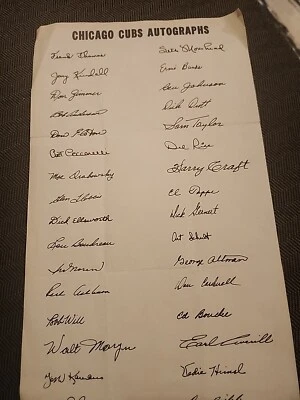 CHICAGO CUBS AUTOGRAPHS
Frank Thomas
Jerry Kindall
Don Zimmer
Bob Anderson
Don Elston
Moe Drabowsky
Glen Hobbie
Dick Ellsworth
Lou Boudreau
Seth Morehead
Rich Ashburn
Bob Will
Walt Moryn
Ernie Banks
Lou Johnson
Dick Drott
Sam Taylor
Del Rice
Harry Craft
El Tappe
Dick Gernert
Art Schult
George Altman
Don Cardwell
Ed Bouchee
Earl Averill
Vedie Himsl